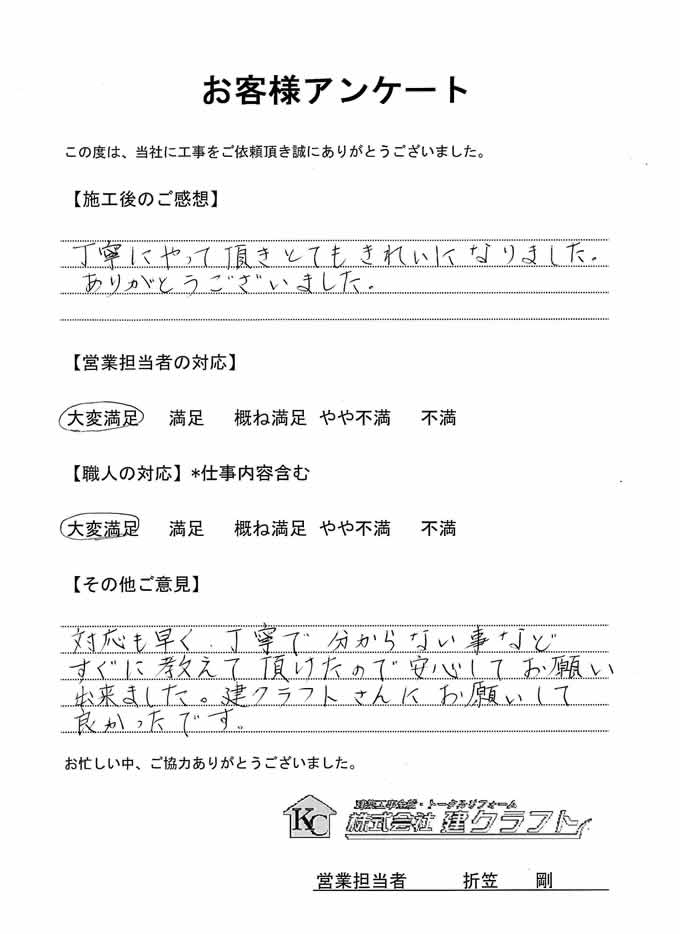 お客様アンケート
この度は、当社に工事をご依頼頂き誠にありがとうございました。
【施工後のご感想】
丁寧にやって頂きとてもきれいになりました。
ありがとうございました。
【営業担当者の対応】
大変満足 満足 概ね満足 やや不満 不満
【職人の対応】*仕事内容含む
大変満足 満足 概ね満足 やや不満 不満
【その他ご意見】
対応も早く、丁寧で分からない事など
すぐに教えて頂けたので安心してお願い
出来ました。建クラフトさんにお願いして
良かったです。
お忙しい中、ご協力ありがとうございました。
建築工事全般・トータルリフォーム
KC 株式会社 建クラフト
営業担当者 折笠 剛